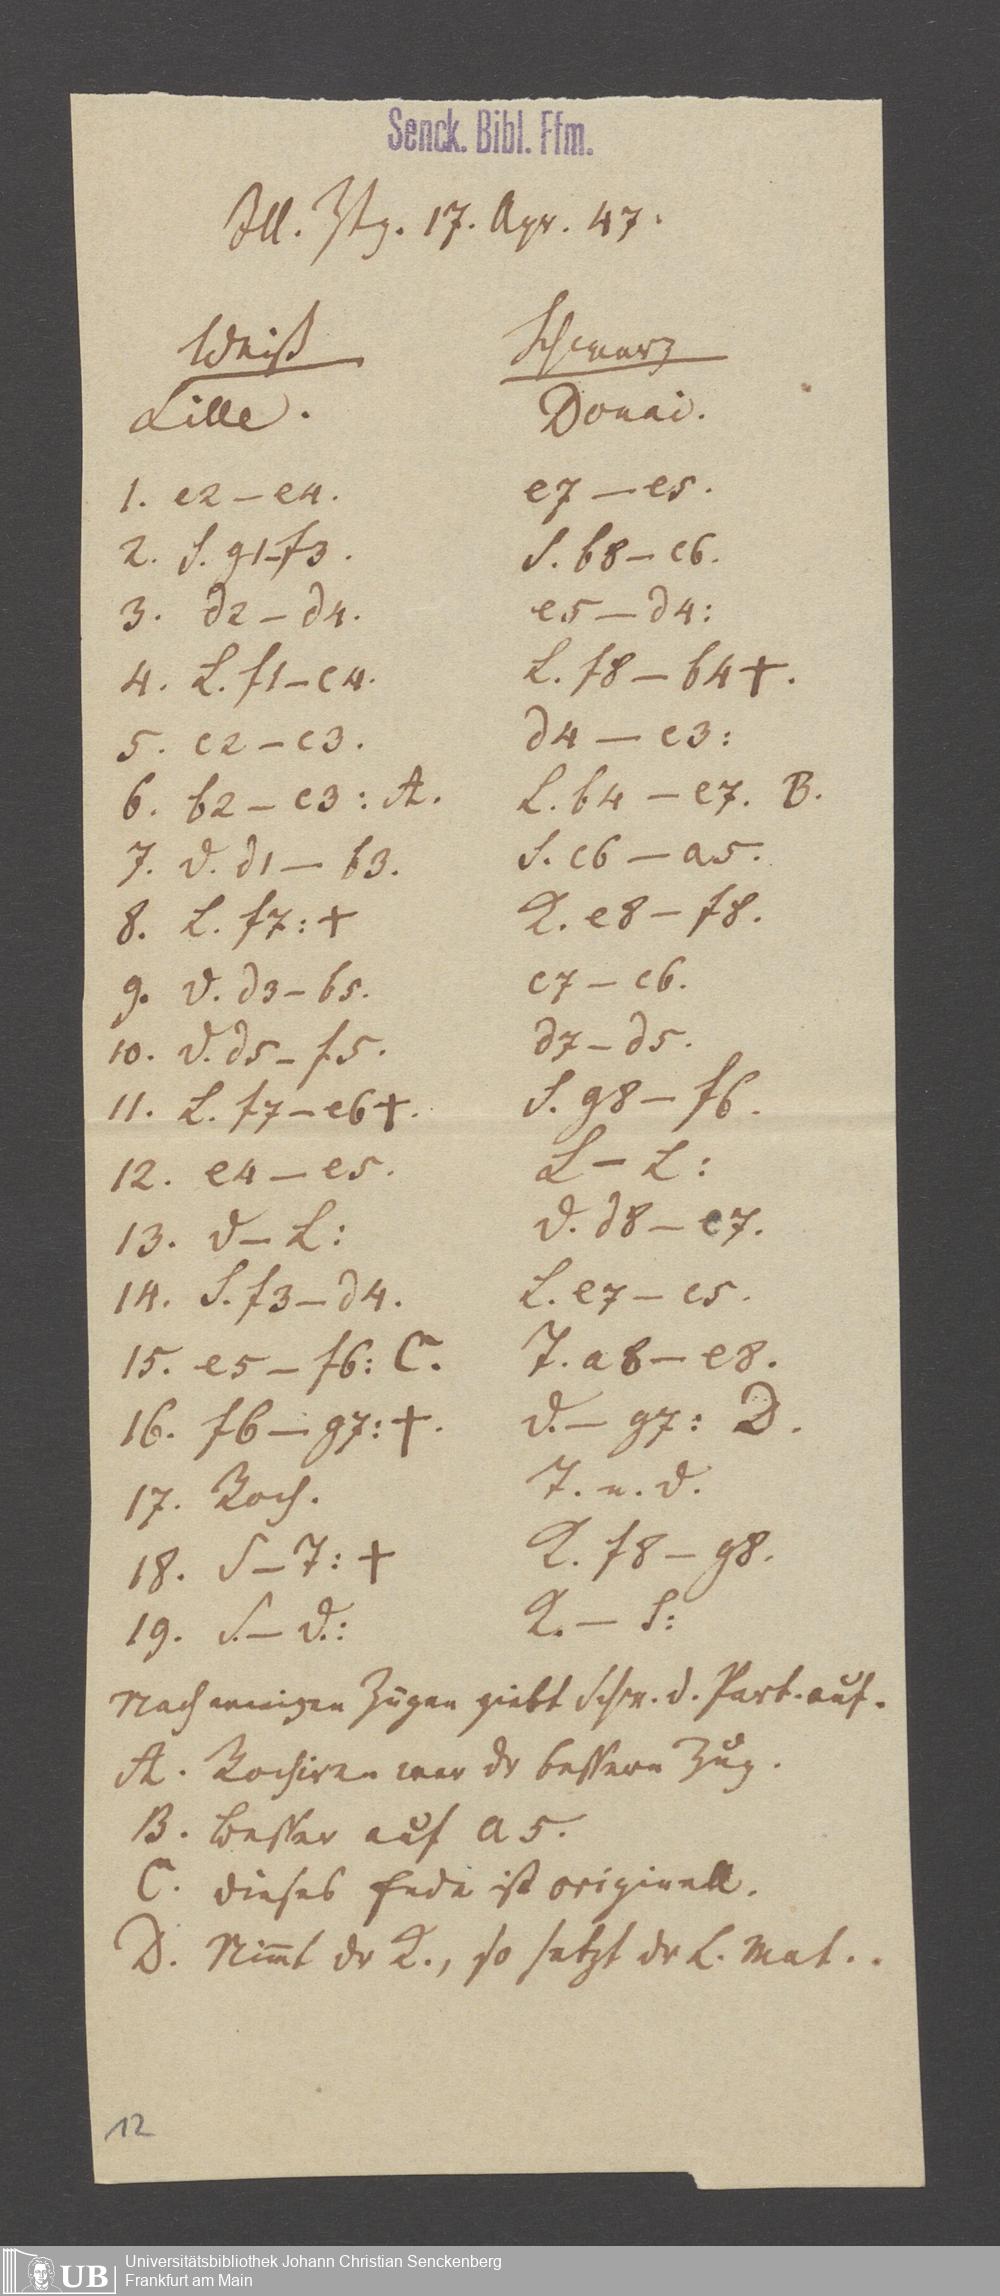 Senck. Bibl. Ffm.
Ill. Ztg. 17. Apr. 47.
Weiß Schwarz
Lille. Douai.
1. e2 – e4. e7 – e5.
2. S. g1–f3. S. b8 – c6.
3. d2 – d4. e5 – d4:
4. L. f1 – c4. L. f8 – b4 †.
5. c2 – c3. d4 – c3:
6. b2 – c3: A. L. b4 – e7. B.
7. D. d1 – b3. S. c6 – a5.
8. L. f7: † K. e8 – f8.
9. D. d3 – b5. c7 – c6.
10. D. d5 – f5. d7 – d5.
11. L. f7 – e6 †. S. g8 – f6.
12. e4 – e5. L – L:
13. D – L: D. d8 – e7.
14. S. f3 – d4. L. e7 – c5.
15. e5 – f6: C. T. a8 – e8.
16. f6 – g7: †. D. – g7: D.
17. Roch. T. n. D.
18. S – T: † K. f8 – g8.
19. S. – D.: K. – S:
Nach wenigen Zügen giebt Schw. d. Part. auf.
A. Rochiren war dr bessere Zug.
B. besser auf a5.
C. dieses Ende ist originell.
D. Nim̅t dr K., so setzt dr L. Mat..
12
UB Universitätsbibliothek Johann Christian Senckenberg
Frankfurt am Main